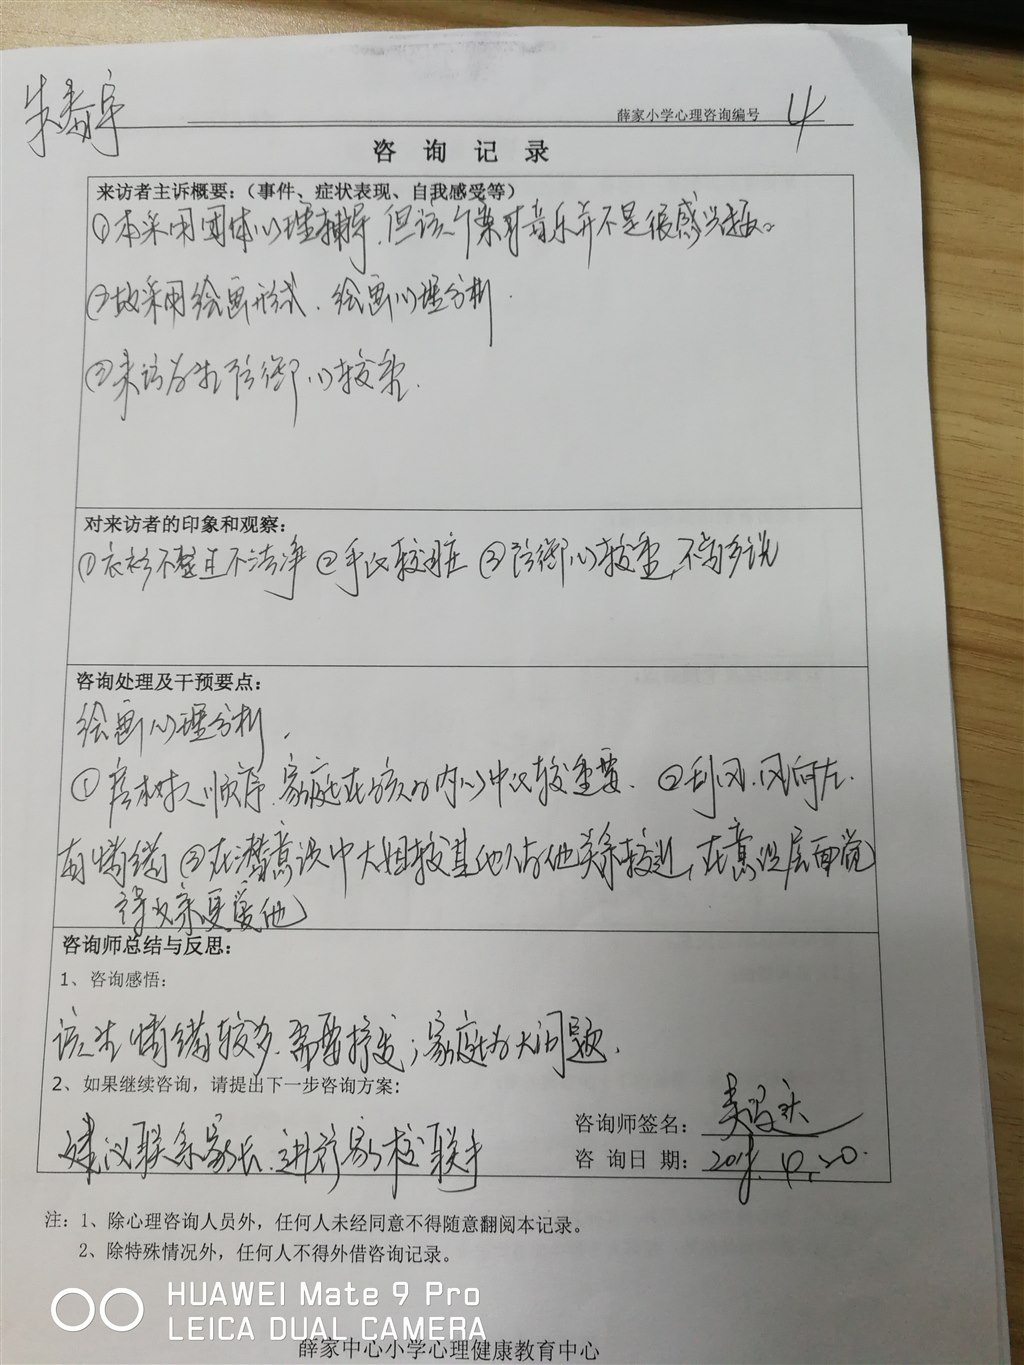 薛家小学心理咨询编号 4
咨 询 记 录
来访者主诉概要：（事件、症状表现、自我感受等）
①本采用团体心理辅导，但该个案对音乐并不是很感兴趣。
②故采用绘画形式、绘画心理分析．
③来访者 防御心较重．
对来访者的印象和观察：
①衣衫不整且不洁净 ②手比较脏 ③防御心较重，不 多说
咨询处理及干预要点：
绘画心理分析．
①房树人顺序，家庭在孩子内心中比较重要． ② 风，风向左．
有情绪 ③在潜意识中大姐较其他人与他关系较近，在意识层面觉
得父亲更爱他
咨询师总结与反思：
1、咨询感悟：
该生情绪较多，需要抒发；家庭为大问题．
2、如果继续咨询，请提出下一步咨询方案：
建议联系家长，进行家校联手
咨询师签名：
咨 询日 期： 4.20.
注：1、除心理咨询人员外，任何人未经同意不得随意翻阅本记录。
2、除特殊情况外，任何人不得外借咨询记录。
HUAWEI Mate 9 Pro
LEICA DUAL CAMERA
薛家中心小学心理健康教育中心